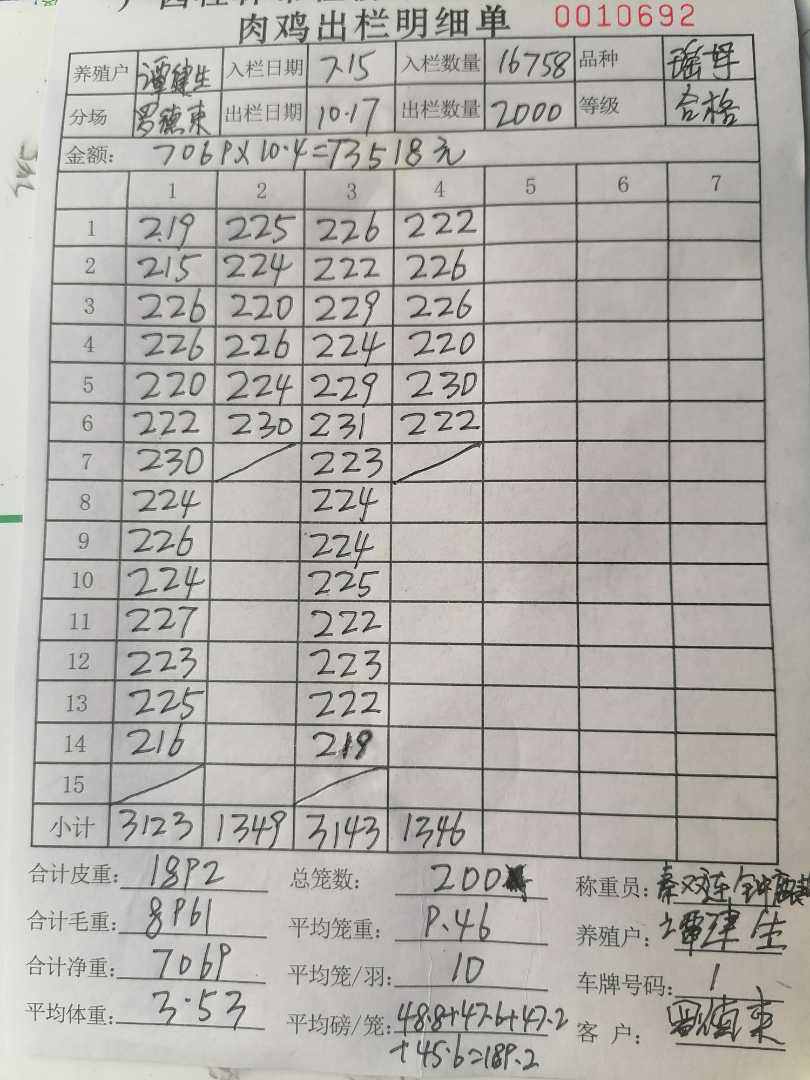 肉鸡出栏明细单 0010692
养殖户 谭建生 入栏日期 7.15 入栏数量 16758 品种
分场 罗德东 出栏日期 10.17 出栏数量 2000 等级 合格
金额: 7069×10.4=73518元
1 2 3 4 5 6 7
1 219 225 226 222
2 215 224 222 226
3 226 220 229 226
4 226 226 224 220
5 220 224 229 230
6 222 230 231 222
7 230 223
8 224 224
9 226 224
10 224 225
11 227 222
12 223 223
13 225 222
14 216 219
15
小计 3123 1349 3143 1346
合计皮重: 1892 总笼数: 200 称重员: 秦双连
合计毛重: 8961 平均笼重: 9.46 养殖户: 谭建生
合计净重: 7069 平均笼/羽: 10 车牌号码: 1
平均体重: 3.53 平均磅/笼: 48.8+47.6+47.2 客户: 罗德东
+45.6=189.2